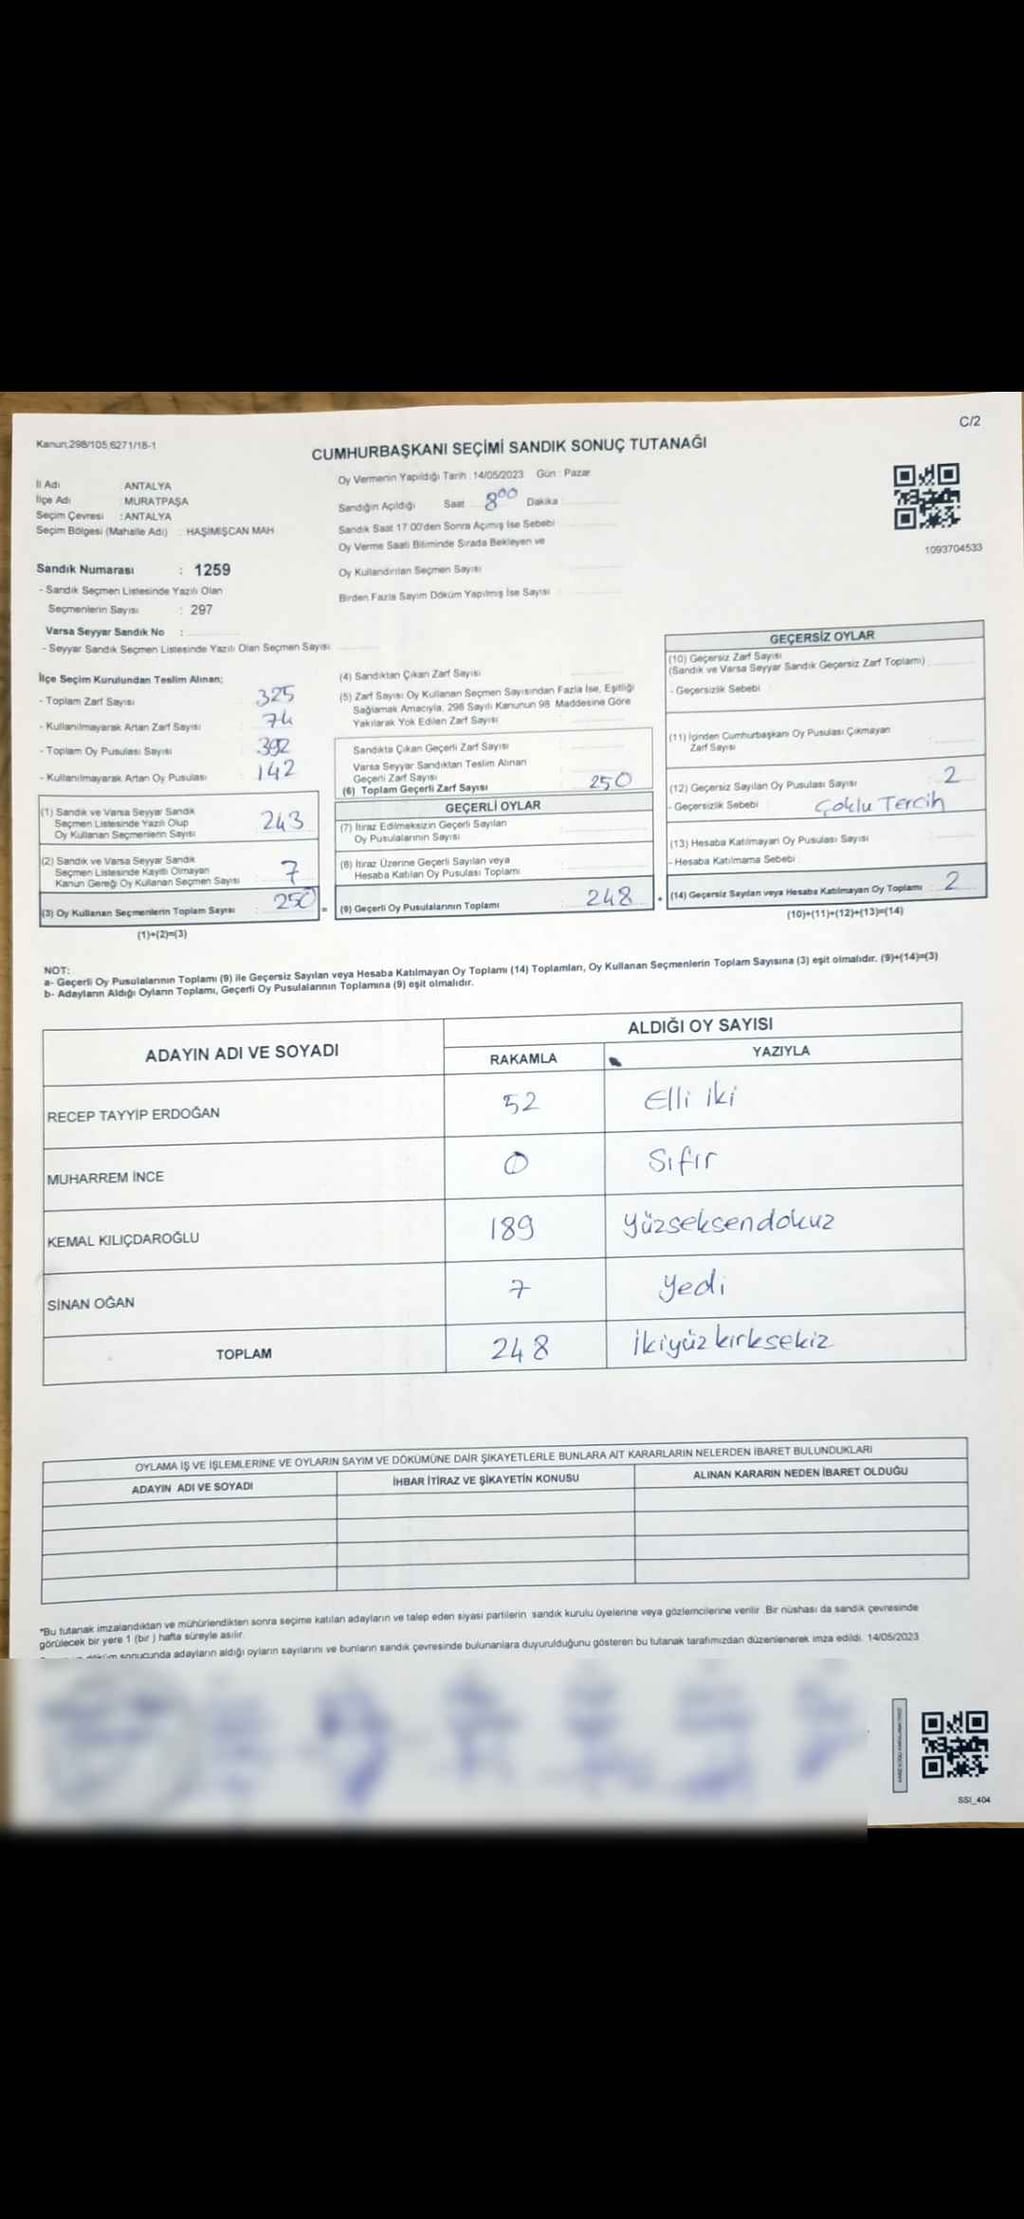 C/2
Kanun:298/105,6271/18-1
CUMHURBAŞKANI SEÇİMİ SANDIK SONUÇ TUTANAĞI
İl Adı : ANTALYA
İlçe Adı : MURATPAŞA
Seçim Çevresi : ANTALYA
Seçim Bölgesi (Mahalle Adı) : HAŞİMİŞCAN MAH
Oy Vermenin Yapıldığı Tarih : 14/05/2023 Gün : Pazar
Sandığın Açıldığı Saat 8⁰⁰ Dakika
Sandık Saat 17:00'den Sonra Açılmış İse Sebebi
Oy Verme Saati Bitiminde Sırada Bekleyen ve
Oy Kullandırılan Seçmen Sayısı
Birden Fazla Sayım Döküm Yapılmış İse Sayısı
1093704533
Sandık Numarası : 1259
- Sandık Seçmen Listesinde Yazılı Olan
Seçmenlerin Sayısı : 297
Varsa Seyyar Sandık No :
- Seyyar Sandık Seçmen Listesinde Yazılı Olan Seçmen Sayısı
İlçe Seçim Kurulundan Teslim Alınan;
- Toplam Zarf Sayısı 325
- Kullanılmayarak Artan Zarf Sayısı 74
- Toplam Oy Pusulası Sayısı 392
- Kullanılmayarak Artan Oy Pusulası 142
(1) Sandık ve Varsa Seyyar Sandık
Seçmen Listesinde Yazılı Olup
Oy Kullanan Seçmenlerin Sayısı 243
(2) Sandık ve Varsa Seyyar Sandık
Seçmen Listesinde Kayıtlı Olmayan
Kanun Gereği Oy Kullanan Seçmen Sayısı 7
(3) Oy Kullanan Seçmenlerin Toplam Sayısı 250 =
(1)+(2)=(3)
(4) Sandıktan Çıkan Zarf Sayısı
(5) Zarf Sayısı Oy Kullanan Seçmen Sayısından Fazla İse, Eşitliği
Sağlamak Amacıyla, 298 Sayılı Kanunun 98. Maddesine Göre
Yakılarak Yok Edilen Zarf Sayısı
Sandıkta Çıkan Geçerli Zarf Sayısı
Varsa Seyyar Sandıktan Teslim Alınan
Geçerli Zarf Sayısı
(6) Toplam Geçerli Zarf Sayısı 250
GEÇERLİ OYLAR
(7) İtiraz Edilmeksizin Geçerli Sayılan
Oy Pusulalarının Sayısı
(8) İtiraz Üzerine Geçerli Sayılan veya
Hesaba Katılan Oy Pusulası Toplamı
(9) Geçerli Oy Pusulalarının Toplamı 248 +
GEÇERSİZ OYLAR
(10) Geçersiz Zarf Sayısı
(Sandık ve Varsa Seyyar Sandık Geçersiz Zarf Toplamı)
- Geçersizlik Sebebi
(11) İçinden Cumhurbaşkanı Oy Pusulası Çıkmayan
Zarf Sayısı
(12) Geçersiz Sayılan Oy Pusulası Sayısı 2
- Geçersizlik Sebebi Çoklu Tercih
(13) Hesaba Katılmayan Oy Pusulası Sayısı
- Hesaba Katılmama Sebebi
(14) Geçersiz Sayılan veya Hesaba Katılmayan Oy Toplamı 2
(10)+(11)+(12)+(13)=(14)
NOT:
a- Geçerli Oy Pusulalarının Toplamı (9) ile Geçersiz Sayılan veya Hesaba Katılmayan Oy Toplamı (14) Toplamları, Oy Kullanan Seçmenlerin Toplam Sayısına (3) eşit olmalıdır. (9)+(14)=(3)
b- Adayların Aldığı Oyların Toplamı, Geçerli Oy Pusulalarının Toplamına (9) eşit olmalıdır.
ADAYIN ADI VE SOYADI
ALDIĞI OY SAYISI
RAKAMLA YAZIYLA
RECEP TAYYİP ERDOĞAN 52 Elli iki
MUHARREM İNCE 0 Sıfır
KEMAL KILIÇDAROĞLU 189 yüzseksendokuz
SİNAN OĞAN 7 Yedi
TOPLAM 248 İkiyüz kırksekiz
OYLAMA İŞ VE İŞLEMLERİNE VE OYLARIN SAYIM VE DÖKÜMÜNE DAİR ŞİKAYETLERLE BUNLARA AİT KARARLARIN NELERDEN İBARET BULUNDUKLARI
ADAYIN ADI VE SOYADI İHBAR İTİRAZ VE ŞİKAYETİN KONUSU ALINAN KARARIN NEDEN İBARET OLDUĞU
*Bu tutanak imzalandıktan ve mühürlendikten sonra seçime katılan adayların ve talep eden siyasi partilerin sandık kurulu üyelerine veya gözlemcilerine verilir. Bir nüshası da sandık çevresinde
görülecek bir yere 1 (bir ) hafta süreyle asılır.
sonucunda adayların aldığı oyların sayılarını ve bunların sandık çevresinde bulunanlara duyurulduğunu gösteren bu tutanak tarafımızdan düzenlenerek imza edildi. 14/05/2023
SSI_404